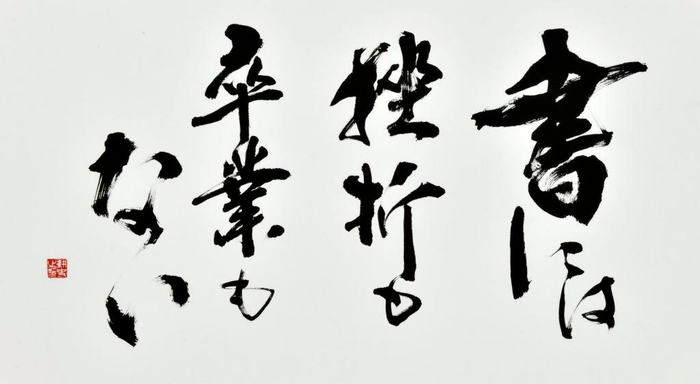 書には
挫折も
卒業も
ない